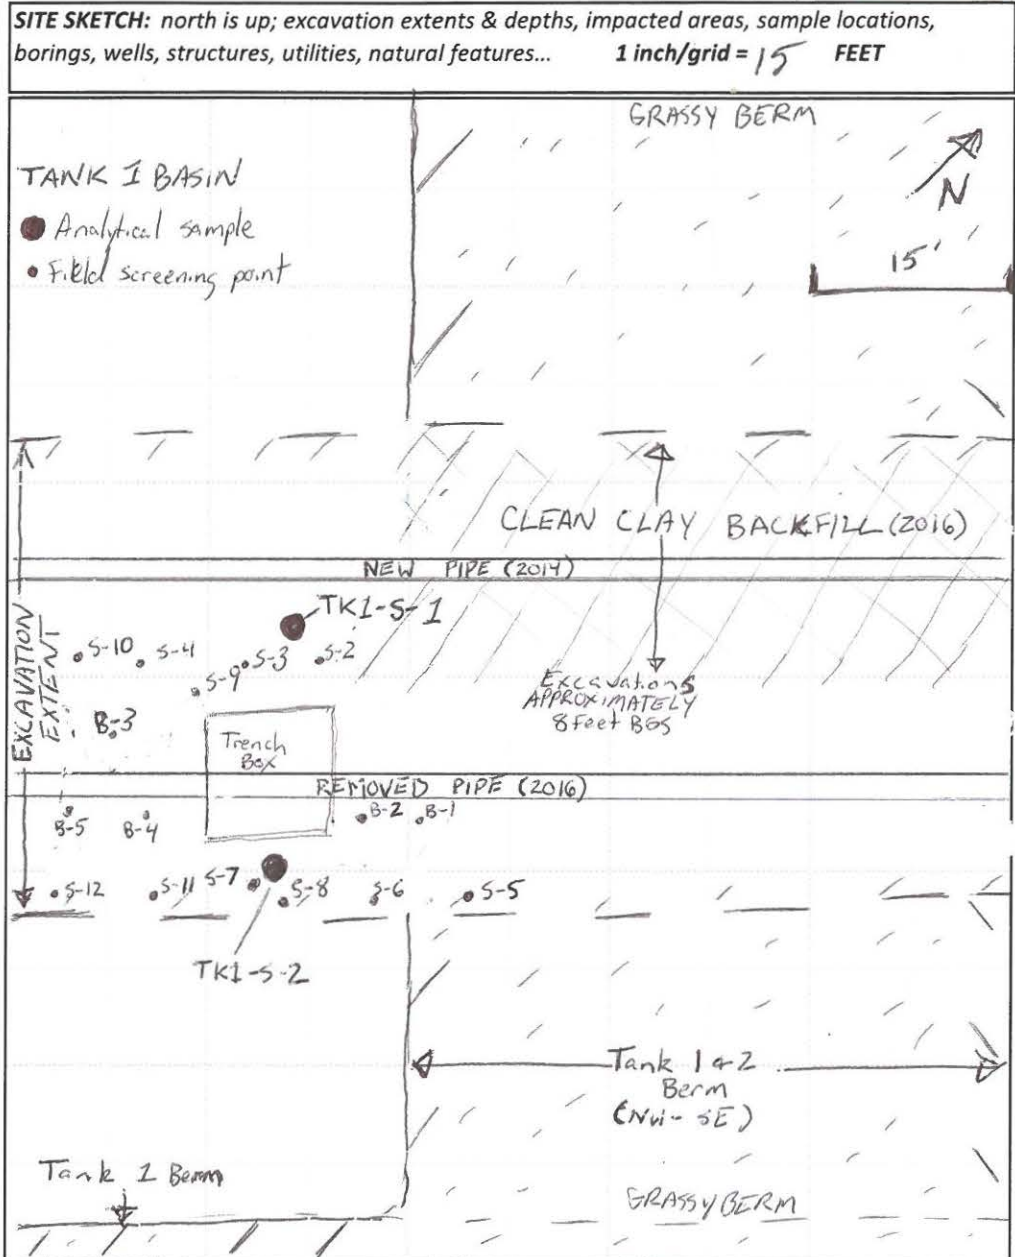 SITE SKETCH: north is up; excavation extents & depths, impacted areas, sample locations,
borings, wells, structures, utilities, natural features... 1 inch/grid = 15 FEET
GRASSY BERM
TANK 1 BASIN
N
Analytical sample
15'
Field screening point
CLEAN CLAY BACKFILL (2016)
NEW PIPE (2014)
TK1-S-1
S-10
S-4
S-9
S-3
S-2
EXCAVATION
EXTENT
Excavations
APPROXIMATELY
8 feet BGS
B-3
Trench
Box
REMOVED PIPE (2016)
B-5
B-4
B-2
B-1
S-12
S-11
S-7
S-8
S-6
S-5
TK1-S-2
Tank 1 & 2
Berm
(NW - SE)
Tank 1 Berm
GRASSY BERM